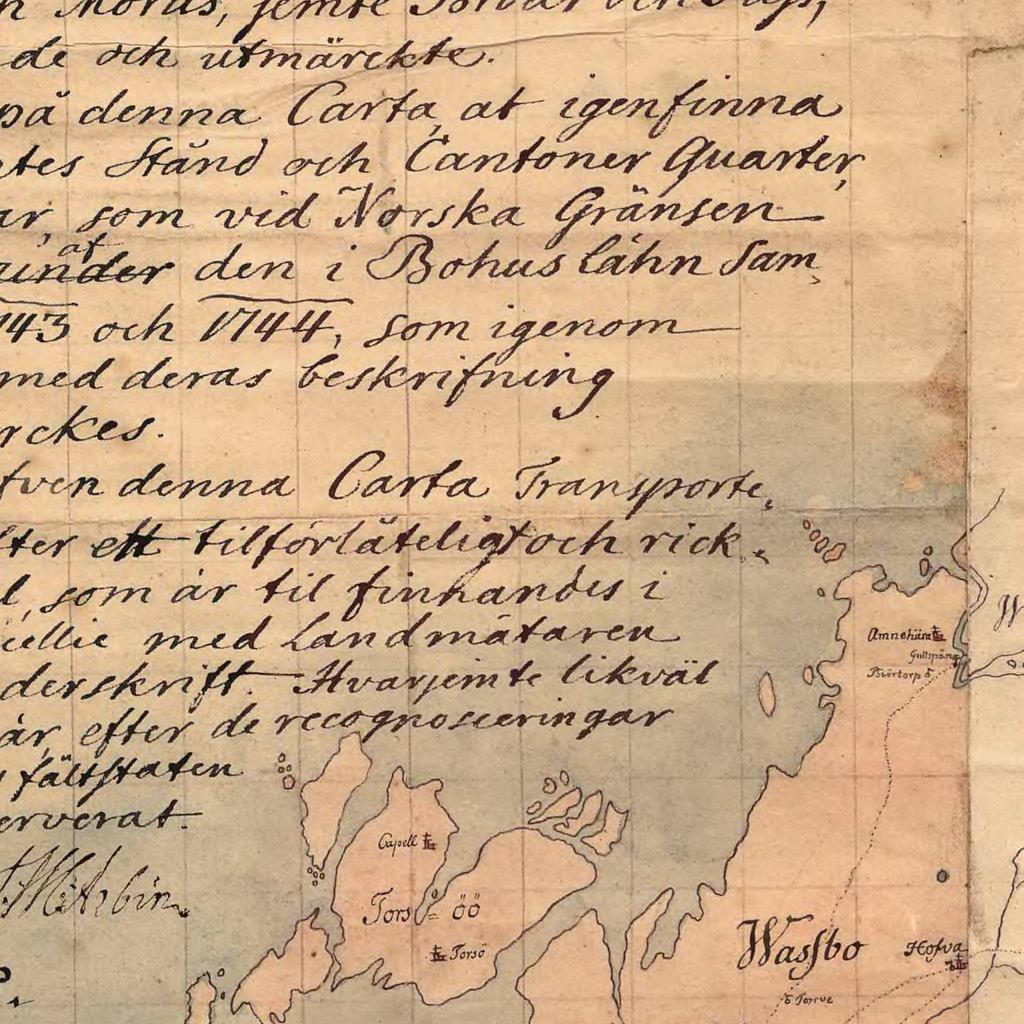 Moras, jemte
de och utmärckte.
på denna Carta, at igenfinna
Stånd och Cantoner Quarter,
ar, som vid Norska Gränsen
at
under den i Bohus lähn Sam,
743 och 1744, som igenom
med deras beskrifning
rckes.
fven denna Carta Transporte,
fter ett tilförlåteligt och rick,
l, som är til finnandes i
cellie med Landmätaren
derskrift. Hvarjemte likväl
är, efter de recognosceringar
fältstaten
erverat.
Amnehära
Gullspång
Biörtorp
Capell
Torsöö
Torsö
Wassbo
Hofva
Torrve